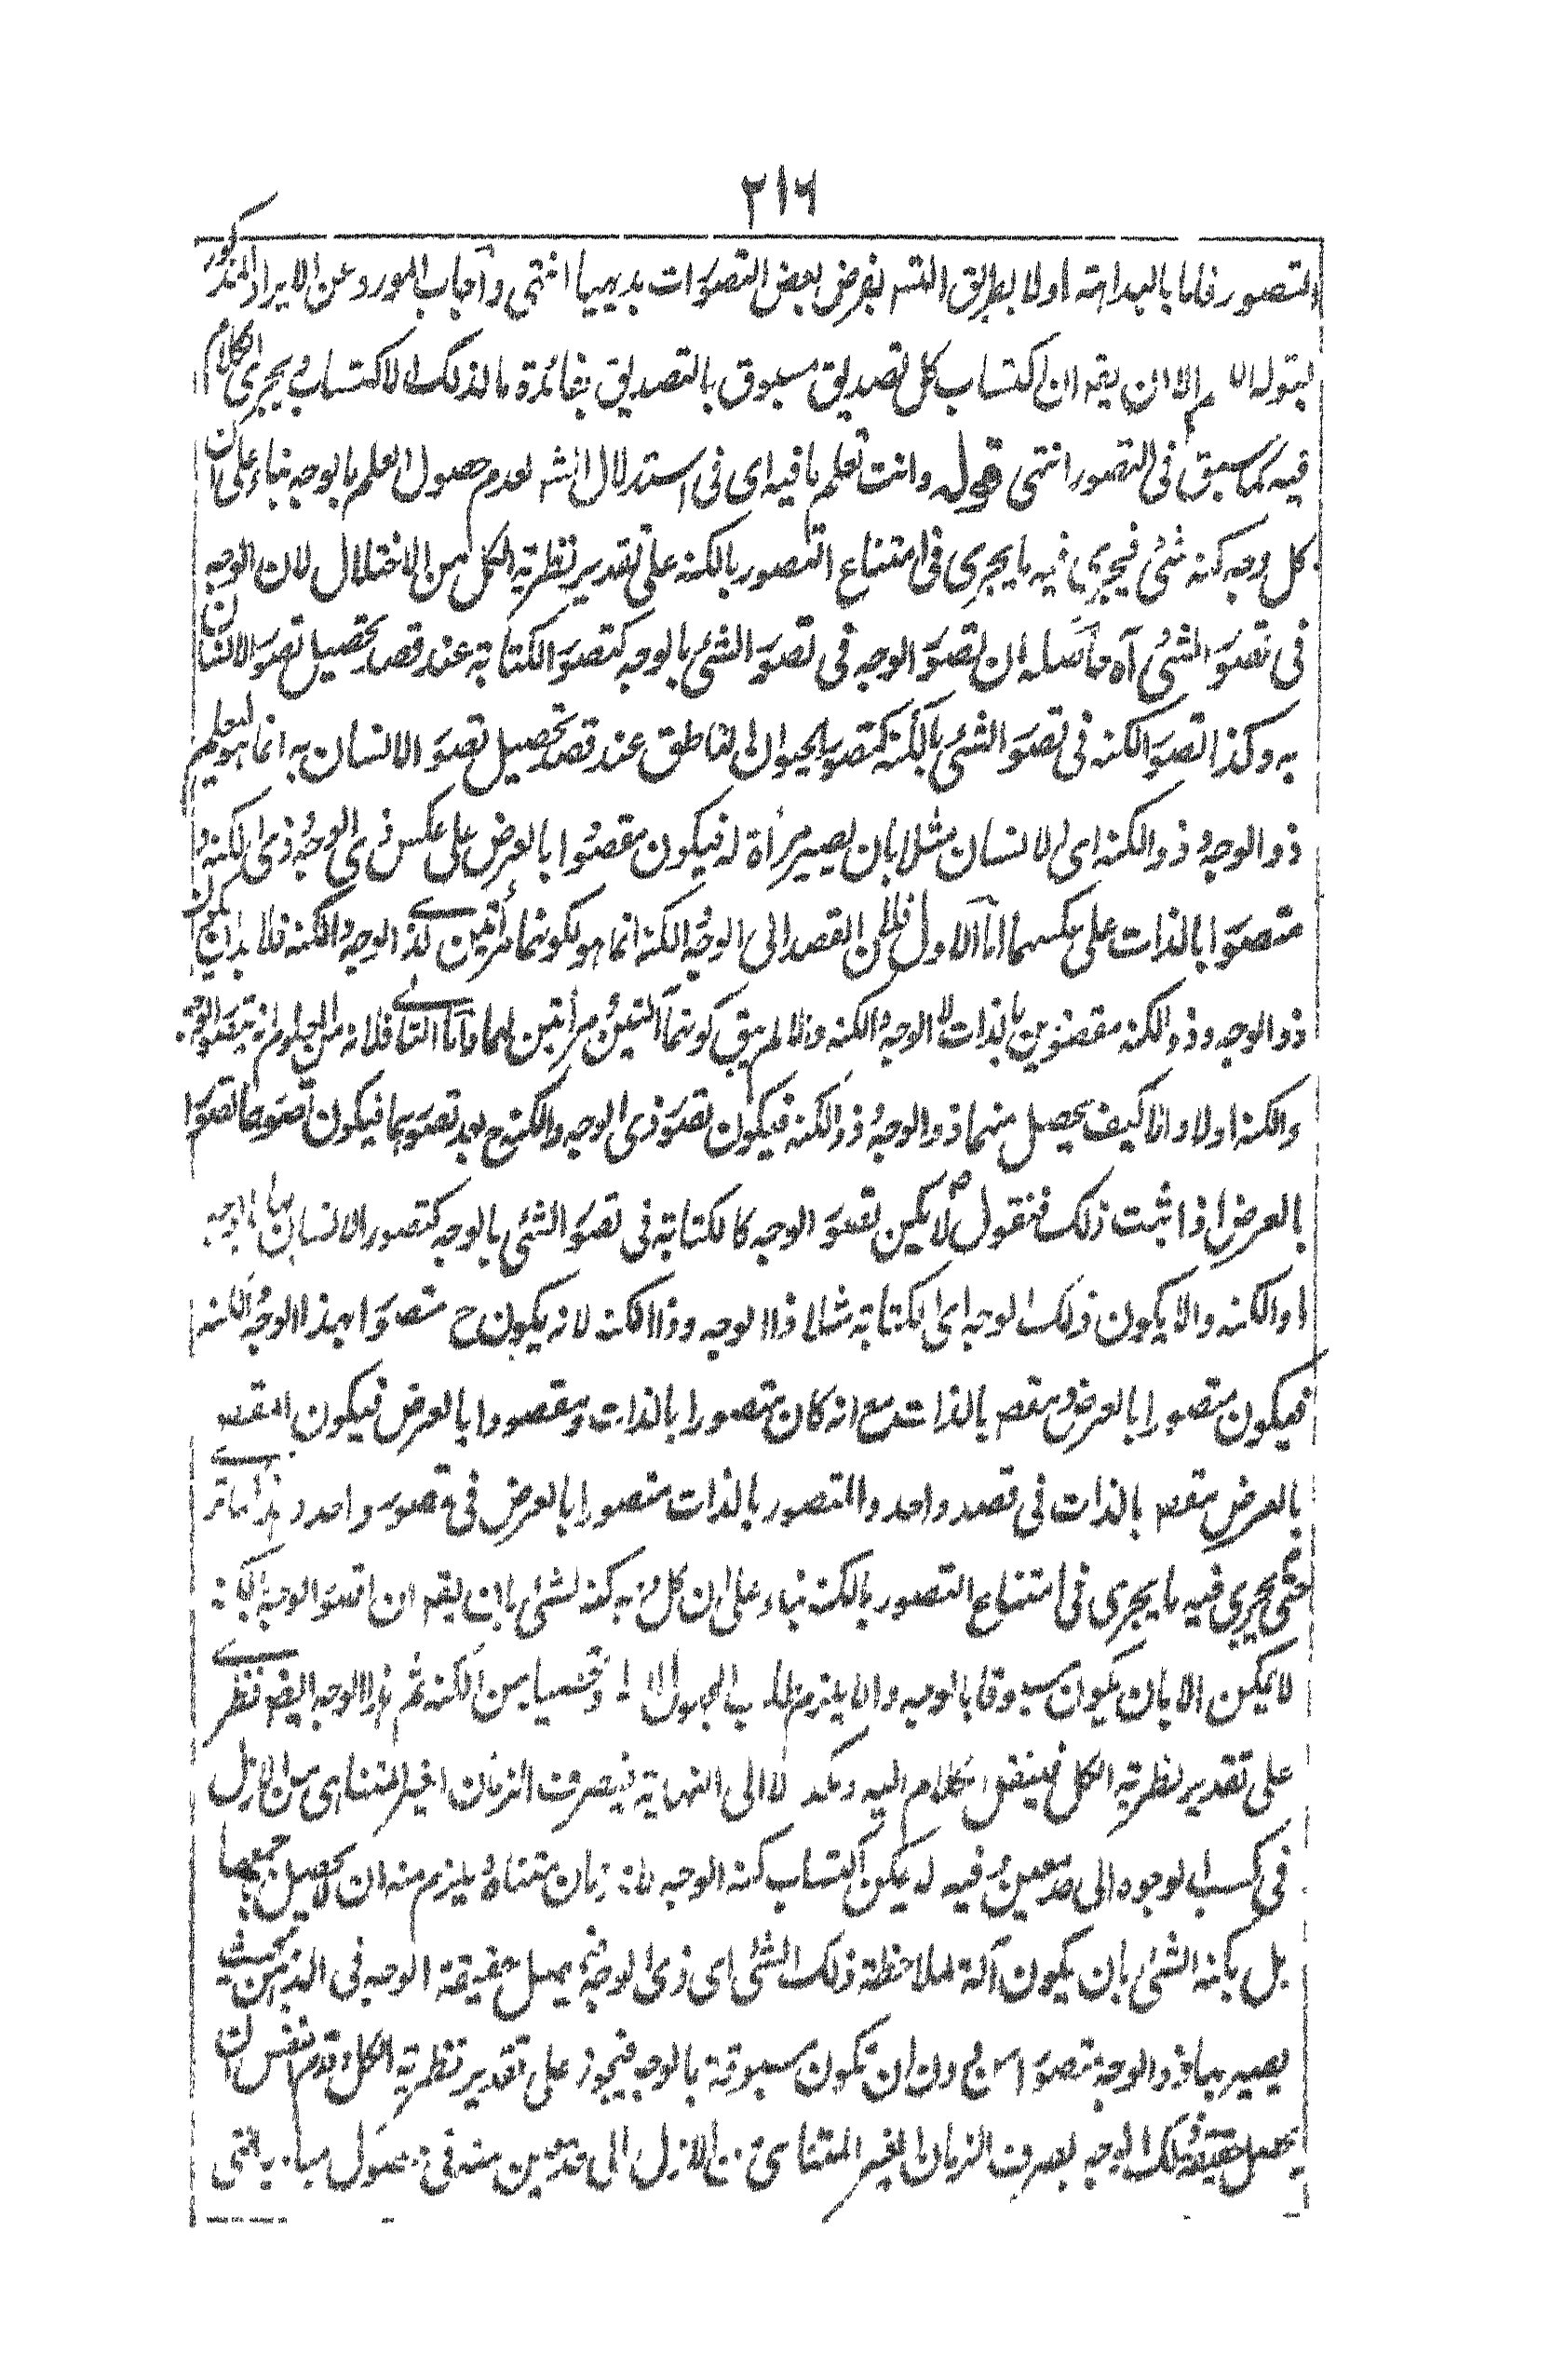 ٢١٦
التصور فاما بالبداهة اولا بطريق التنبه بفرض بعض التصورات بديهيا انتهى واجاب المورد عن الايراد المذكور
بقوله اللهم الا ان يقه ان اكتساب كل تصديق مسبوق بالتصديق بفائدة ما لذلك الاكتساب ويجرى الكلام
فيه كما سبق فى التصور انتهى قوله وانت تعلم ما فيه اى فى استدلال الشه لعدم حصول العلم بالوجه بناء على ان
كل وجه كنه شئ فيجرى فيه ما يجرى فى امتناع التصور بالكنه على تقدير نظرية الكل من الاختلال لان الوجه
فى تصور الشئ آه حاصله ان تصور الوجه فى تصور الشئ بالوجه كتصور الكتابة عند قصد تحصيل تصور الانسان
به وكذا تصور الكنه فى تصور الشئ بالكنه كتصور الحيوان الناطق عند قصد تحصيل تصور الانسان به انما هو ليعلم
ذو الوجه وذو الكنه اى الانسان مثلا بان يصير مرأة له فيكون مقصودا بالعرض على عكس ذى الوجه وذى الكنه و
متصورا بالذات على عكسهما اما الاول فلان القصد الى الوجه والكنه انما هو لكونهما مرأتين لذ الوجه والكنه فلا بد ان يكون
ذو الوجه وذو الكنه مقصودين بالذات لا الوجه والكنه والا لم يبق كونهما مرأتين لهما واما الثانى فلانه من المعلوم انه يتصور الوجه
والكنه اولا والا كيف يحصل منهما ذو الوجه وذو الكنه فيكون تصور ذى الوجه والكنه ح بعد تصورهما فيكون تصورهما تصورا
بالعرض اذا ثبت ذلك فنقول لا يمكن تصور الوجه كالكتابة فى تصور الشئ بالوجه كتصور الانسان بها بالوجه
او الكنه والا يكون ذلك الوجه اى الكتابة مثلا ذا الوجه وذا الكنه لانه يكون ح متصورا بهذا الوجه والكنه
فيكون متصورا بالعرض ومقصه بالذات مع انه كان متصورا بالذات ومقصودا بالعرض فيكون المقصه
بالعرض مقصه بالذات فى قصد واحد والمتصور بالذات متصورا بالعرض فى تصور واحد وهذا ما تر
حتى يجرى فيه ما يجرى فى امتناع التصور بالكنه بناء على ان كل وجه كنه لشئ بان يقه ان تصور الوجه بالكنه
لا يمكن الا بان يكون مسبوقا بالوجه والا يلزم طلب المجهول من الكنه ثم هذا الوجه ايضه نظرى
على تقدير نظرية الكل فينقل الكلام اليه وهكذا لا الى النهاية فيصرف الزمان الغير المتناهى من الازل
فى كسب الوجوه الى حد معين وفيه لا يمكن اكتساب كنه الوجه لانه زمان متناه ويلزم منه ان لا يحصل جميعها
بل بكنه الشئ بان يكون آلة لملاحظة ذلك الشئ اى ذى الوجه فح يحصل حقيقة الوجه فى الذهن بحيث
يصير بها ذو الوجه متصورا من دون ان تكون مسبوقة بالوجه فيجوز على تقدير نظرية الكل وقدم النفس ان
يحصل حقيقة ذلك الوجه بصرف الزمان الغير المتناهى من الازل الى حد معين منه فى حصول مباديه التى